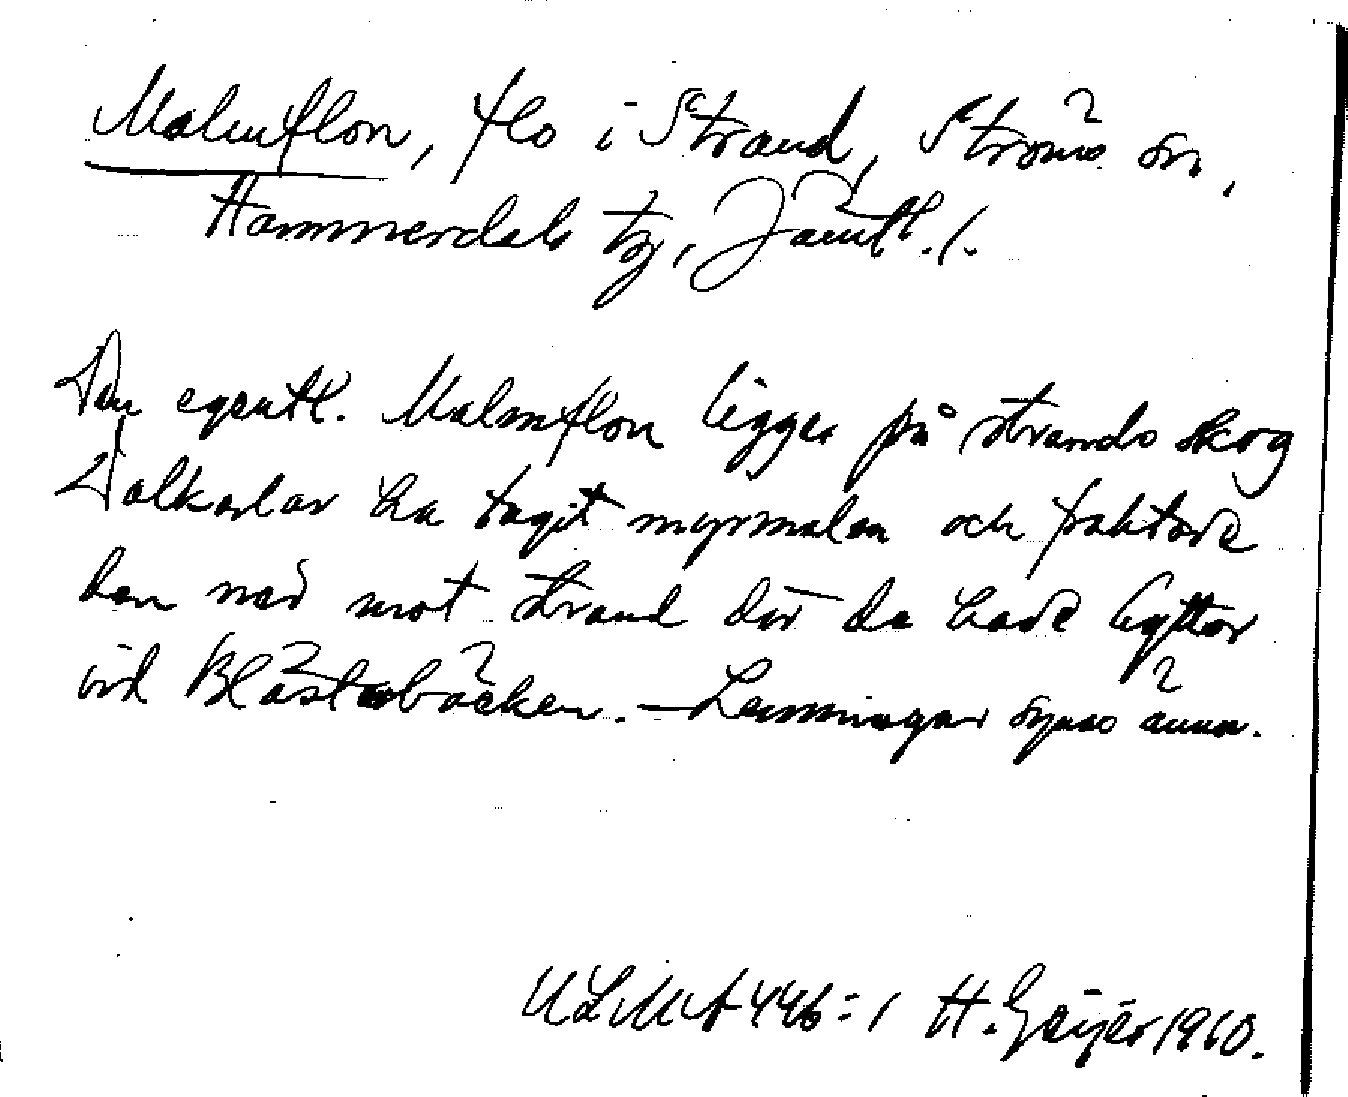 Malmflon, flo i Strand, Ströms sn,
Hammerdals tg, Jämtl. l.
Den egentl. Malmflon ligger på strands skog
Dalkarlar ha tagit myrmalm och fraktade
den ned mot Strand där de hade hyttor
vid Blästerbäcken. — Lämningar synas ännu.
ULMA 446:1 H. Geijer 1910.